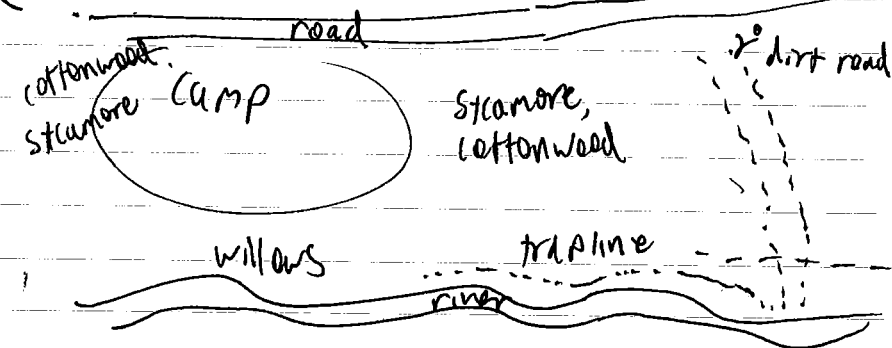 road
2° dirt road
cottonwood
sycamore
Camp
Sycamore,
cottonwood
willows
trapline
river